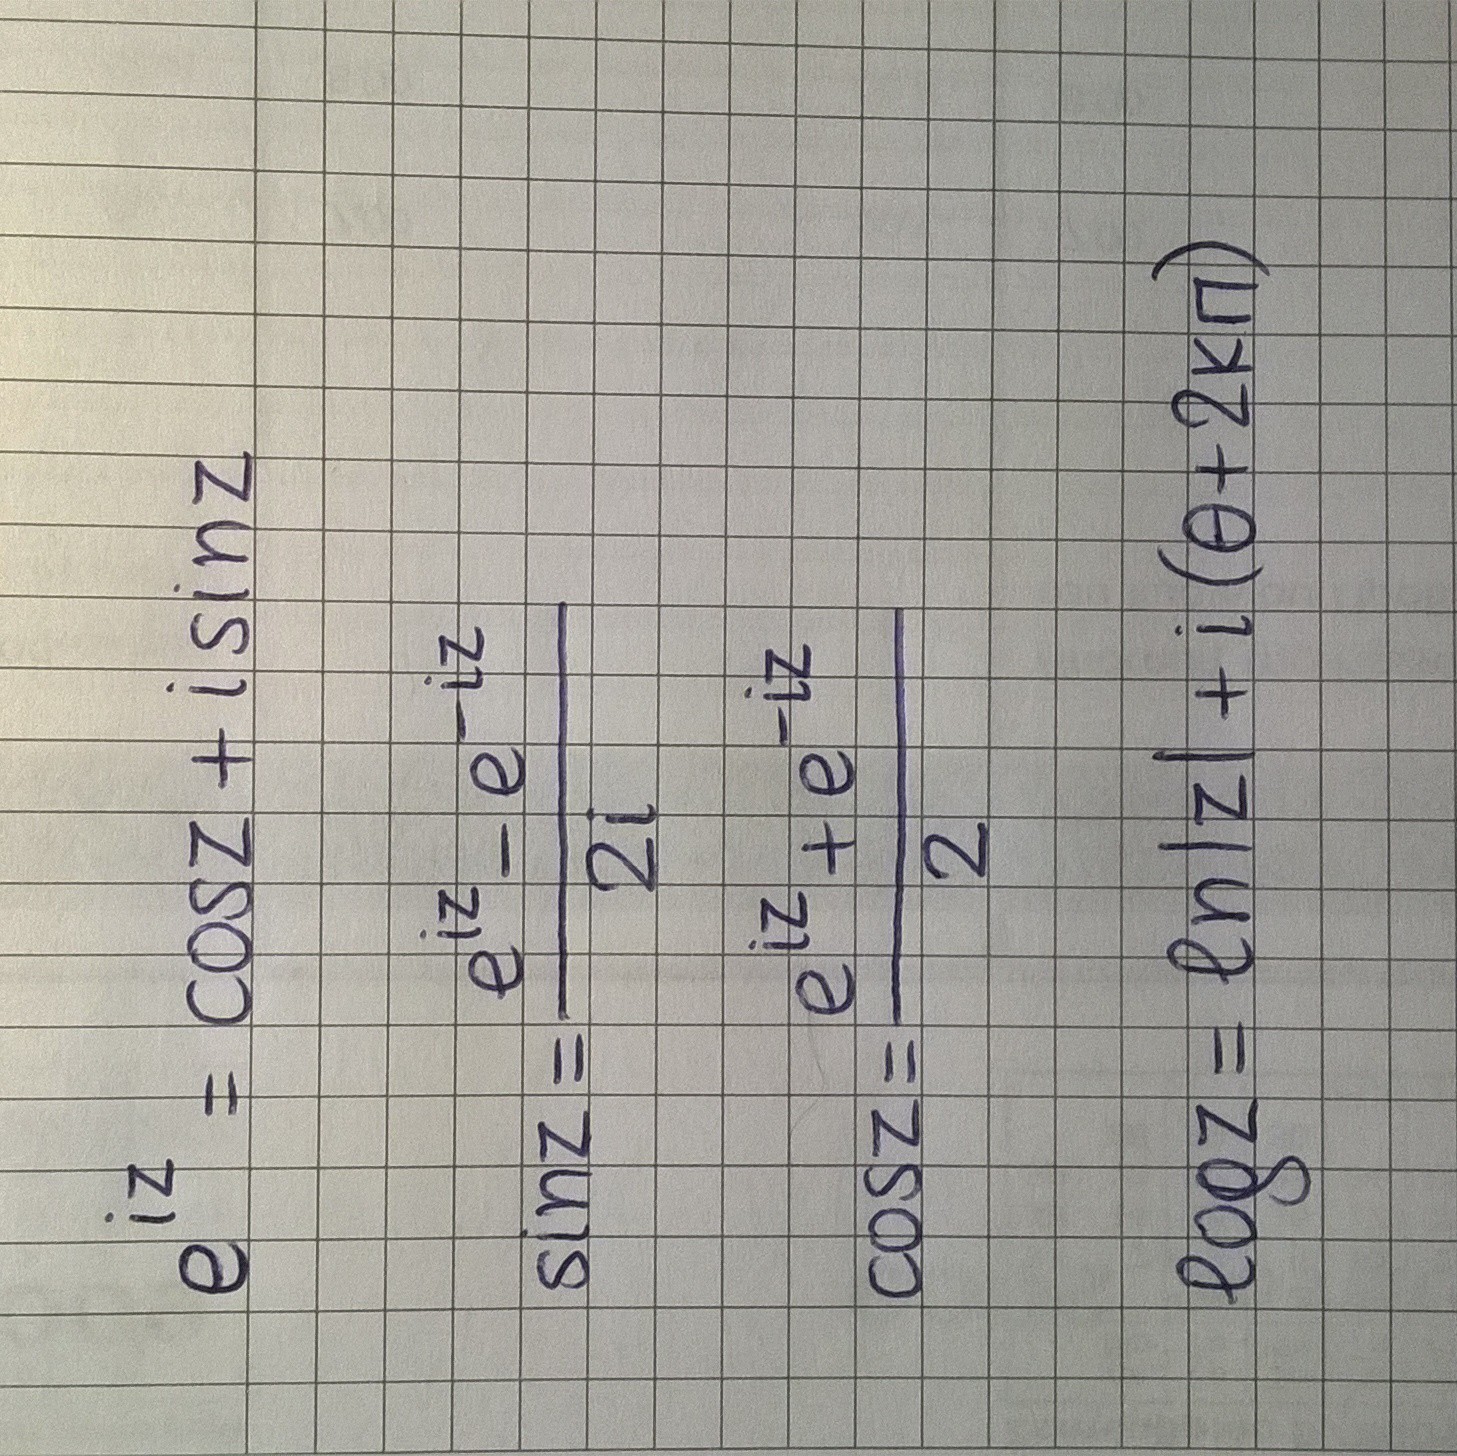 e^{iz} = cosz + isinz
sinz = \frac{e^{iz} - e^{-iz}}{2i}
cosz = \frac{e^{iz} + e^{-iz}}{2}
logz = ln|z| + i(θ + 2kπ)